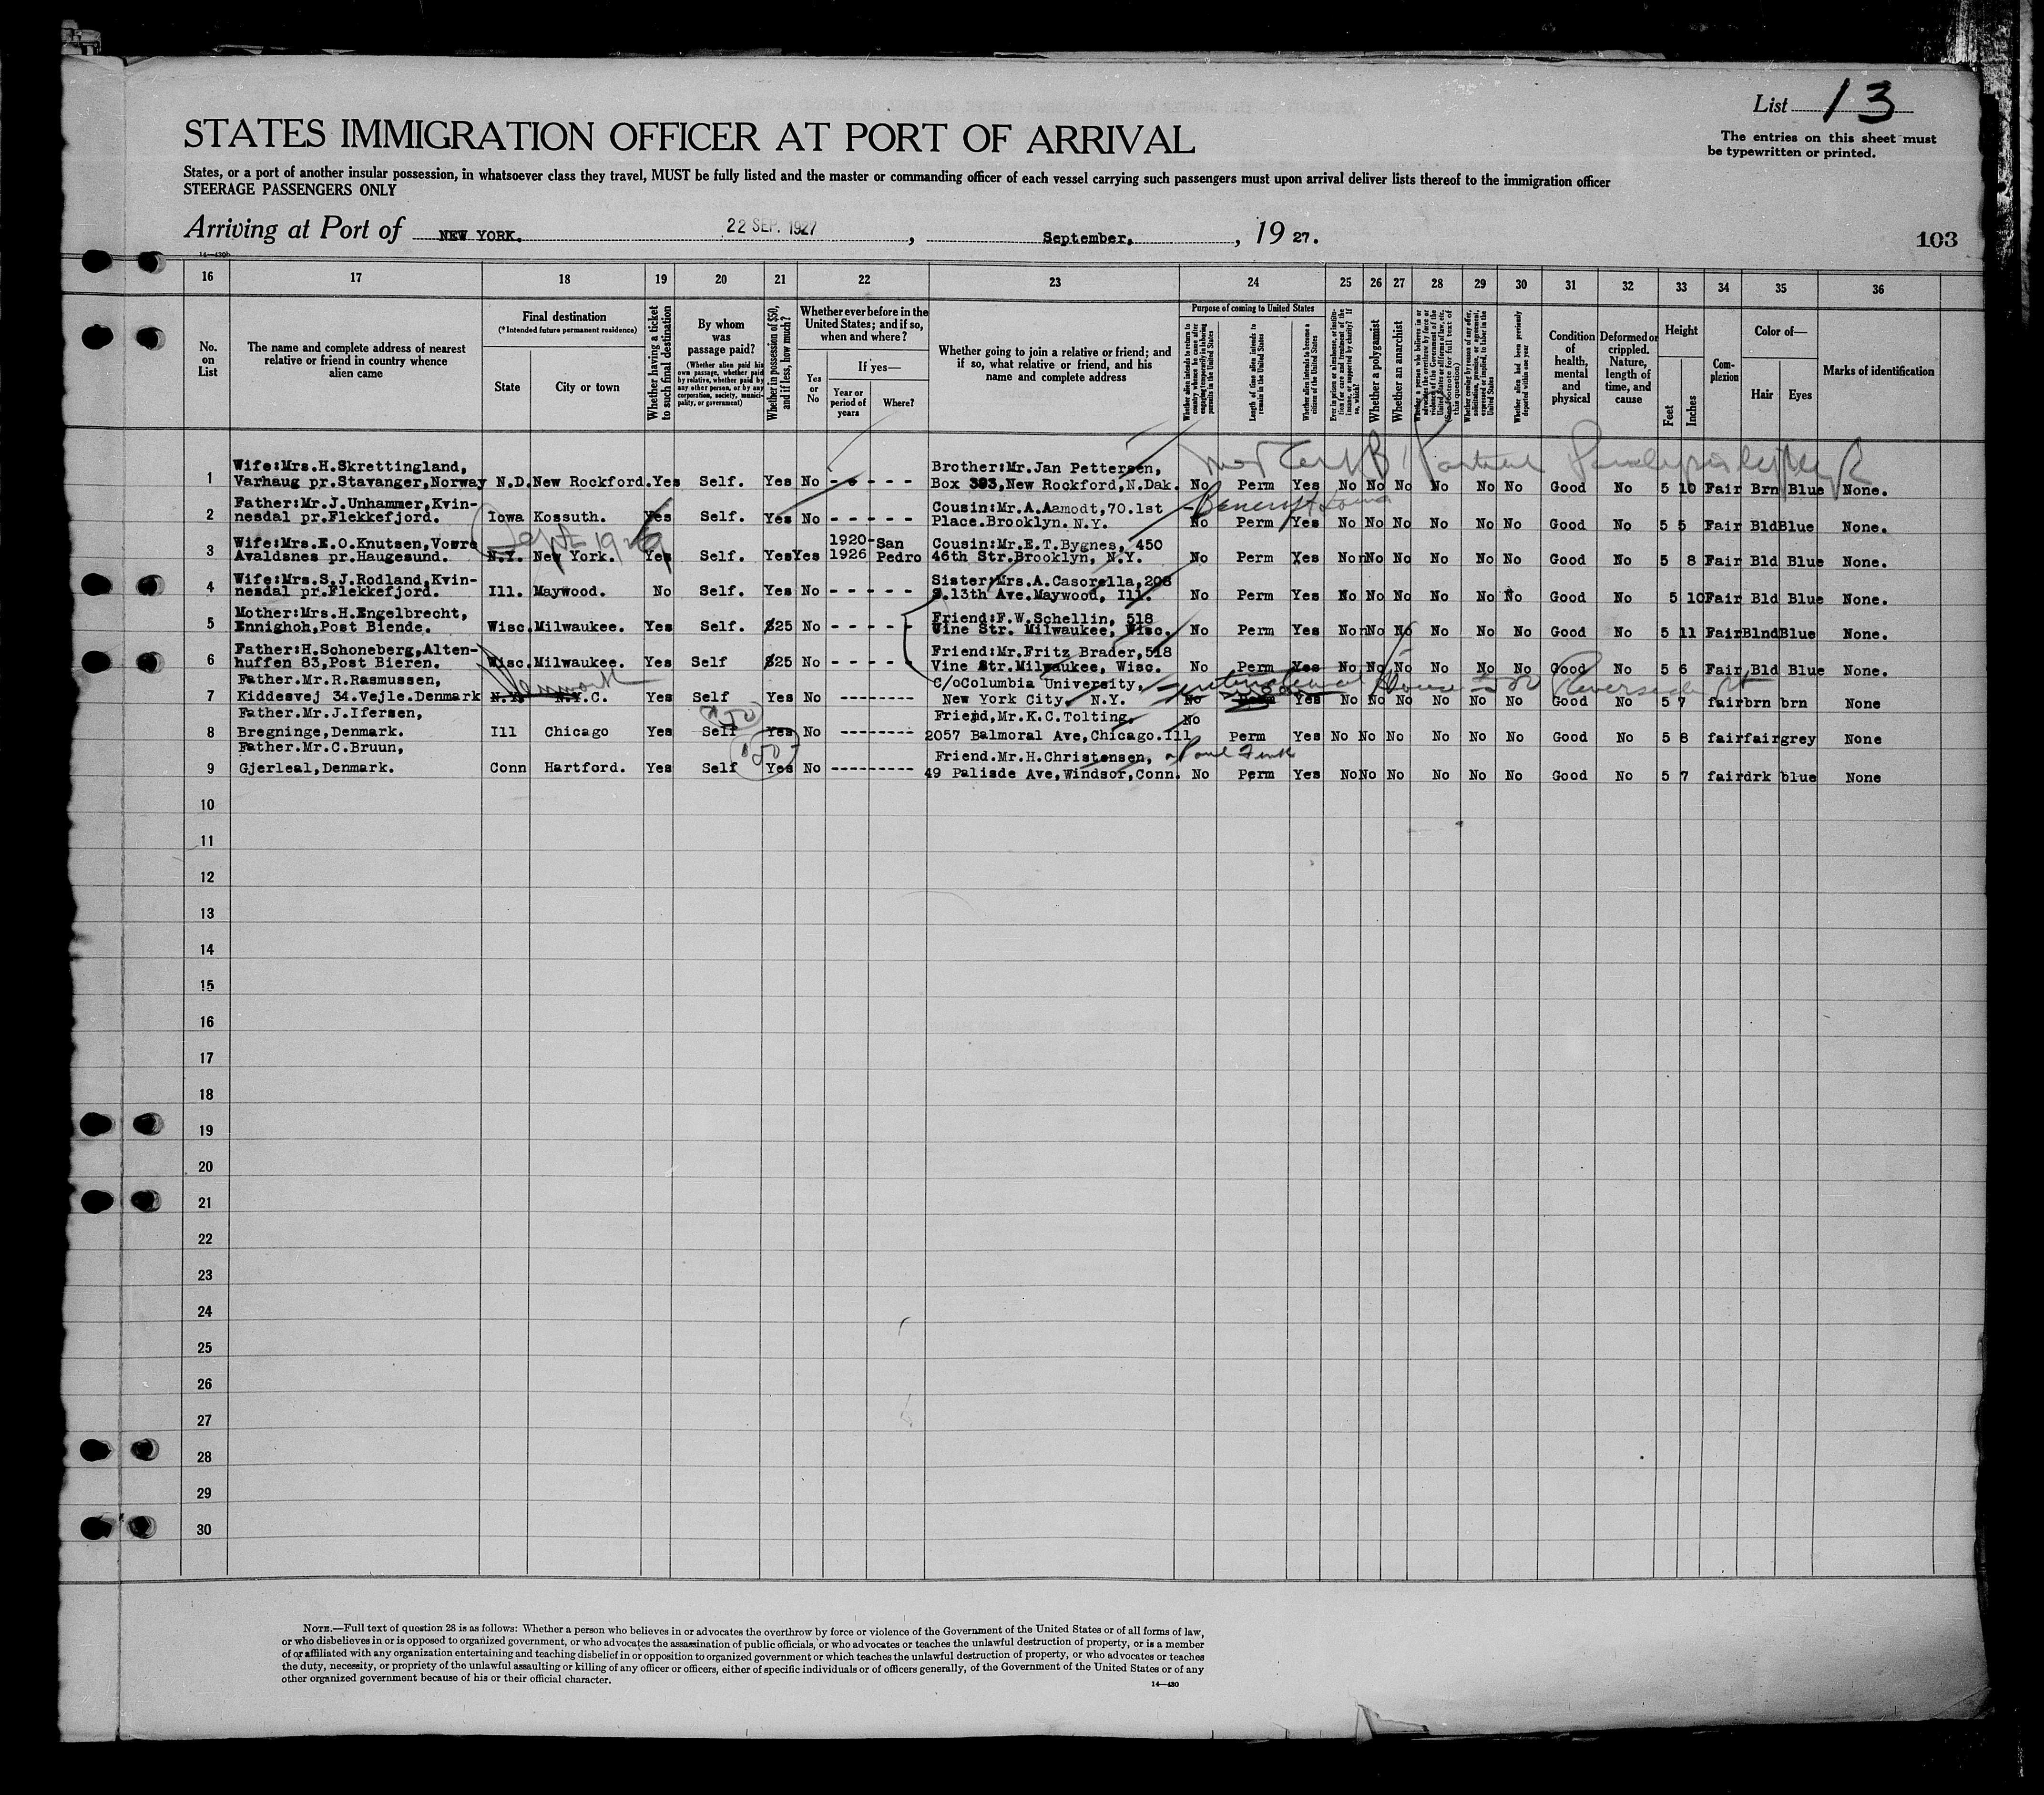 List 13
The entries on this sheet must
be typewritten or printed.
STATES IMMIGRATION OFFICER AT PORT OF ARRIVAL
States, or a port of another insular possession, in whatsoever class they travel, MUST be fully listed and the master or commanding officer of each vessel carrying such passengers must upon arrival deliver lists thereof to the immigration officer
STEERAGE PASSENGERS ONLY
Arriving at Port of NEW YORK. 22 SEP. 1927, September, 1927.
103
14—430b
16 17 18 19 20 21 22 23 24 25 26 27 28 29 30 31 32 33 34 35 36
No. on List
The name and complete address of nearest relative or friend in country whence alien came
Final destination
(*Intended future permanent residence)
State
City or town
Whether having a ticket to such final destination
By whom was passage paid?
(Whether alien paid his own passage, whether paid by relative, whether paid by any other person, or by any corporation, society, municipality, or government)
Whether in possession of $50, and if less, how much?
Whether ever before in the United States; and if so, when and where?
Yes or No
If yes—
Year or period of years
Where?
Whether going to join a relative or friend; and if so, what relative or friend, and his name and complete address
Purpose of coming to United States
Whether alien intends to return to country whence he came after engaging temporarily in laboring pursuits in the United States
Length of time alien intends to remain in the United States
Whether alien intends to become a citizen of the United States
Ever in prison or almshouse, or institution for care and treatment of the insane, or supported by charity? If so, which?
Whether a polygamist
Whether an anarchist
Whether a person who believes in or advocates the overthrow by force or violence of the Government of the United States or all forms of law, etc. (See footnote for full text of this question)
Whether coming by reason of any offer, solicitation, promise, or agreement, expressed or implied, to labor in the United States
Whether alien had been previously deported within one year
Condition of health, mental and physical
Deformed or crippled. Nature, length of time, and cause
Height
Feet
Inches
Complexion
Color of—
Hair
Eyes
Marks of identification
1 Wife:Mrs.H.Skrettingland,
Varhaug pr.Stavanger,Norway N.D. New Rockford. Yes Self. Yes No - - - - - Brother:Mr.Jan Pettersen,
Box 393,New Rockford,N.Dak. No Perm Yes No No No No No No Good No 5 10 Fair Brn Blue None.
2 Father:Mr.J.Unhammer,Kvin-
nesdal pr.Flekkefjord. Iowa Kossuth. Yes Self. Yes No - - - - - Cousin:Mr.A.Aamodt,70.1st
Place.Brooklyn. N.Y. No Perm Yes No No No No No No Good No 5 5 Fair Bld Blue None.
Bancroft Iowa
3 Wife:Mrs.E.O.Knutsen,Vowre
Avaldsnes pr.Haugesund. N.Y. New York. Yes Self. Yes Yes 1920-1926 San Pedro Cousin:Mr.E.T.Bygnes, 450
46th Str.Brooklyn, N.Y. No Perm Yes No No No No No No Good No 5 8 Fair Bld Blue None.
4 Wife:Mrs.S.J.Rodland,Kvin-
nesdal pr.Flekkefjord. Ill. Maywood. No Self. Yes No - - - - - Sister:Mrs.A.Casorella,208
S.13th Ave.Maywood, Ill. No Perm Yes No No No No No No Good No 5 10 Fair Bld Blue None.
5 Mother:Mrs.H.Engelbrecht,
Ennighoh,Post Biende. Wisc. Milwaukee. Yes Self. $25 No - - - - - Friend:F.W.Schellin, 518
Vine Str. Milwaukee, Wisc. No Perm Yes No No No No No No Good No 5 11 Fair Blnd Blue None.
6 Father:H.Schoneberg,Alten-
huffen 83,Post Bieren. Wisc. Milwaukee. Yes Self $25 No - - - - - Friend:Mr.Fritz Brader,518
Vine Str.Milwaukee, Wisc. No Perm Yes No No No No No No Good No 5 6 Fair Bld Blue None.
7 Father.Mr.R.Rasmussen,
Kiddesvej 34.Vejle.Denmark N.Y. N.Y.C. Yes Self Yes No -------- C/oColumbia University,
New York City, N.Y. No Perm Yes No No No No No No Good No 5 7 fair brn brn None
Denmark
International House 500 Riverside Dr
8 Father.Mr.J.Ifersen,
Bregninge,Denmark. Ill Chicago Yes Self Yes No -------- Friend,Mr.K.C.Tolting,
2057 Balmoral Ave,Chicago.Ill No Perm Yes No No No No No No Good No 5 8 fair fair grey None
$50
9 Father.Mr.C.Bruun,
Gjerleal,Denmark. Conn Hartford. Yes Self Yes No --------- Friend.Mr.H.Christensen,
49 Palisde Ave,Windsof,Conn. No Perm Yes No No No No No No Good No 5 7 fair drk blue None
$50
10
11
12
13
14
15
16
17
18
19
20
21
22
23
24
25
26
27
28
29
30
NOTE.—Full text of question 28 is as follows: Whether a person who believes in or advocates the overthrow by force or violence of the Government of the United States or of all forms of law,
or who disbelieves in or is opposed to organized government, or who advocates the assassination of public officials, or who advocates or teaches the unlawful destruction of property, or is a member
of or affiliated with any organization entertaining and teaching disbelief in or opposition to organized government or which teaches the unlawful destruction of property, or who advocates or teaches
the duty, necessity, or propriety of the unlawful assaulting or killing of any officer or officers, either of specific individuals or of officers generally, of the Government of the United States or of any
other organized government because of his or their official character.
14—430